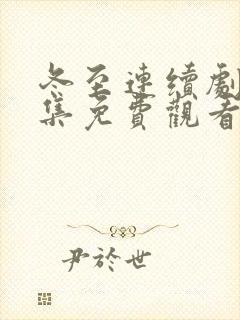 冬至連續劇
集免費觀看
尹於世